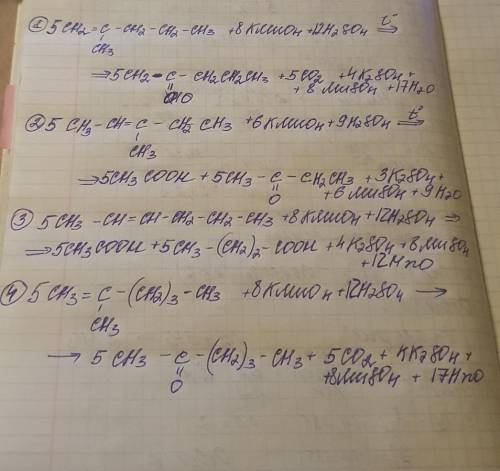 ① 5CH₂=C-CH₂-CH₂-CH₃ +8KMnO₄+12H₂SO₄ t° ⇒
CH₃
⇒5CH₃-C-CH₂CH₂CH₃+5CO₂+4K₂SO₄+
O
+8MnSO₄+17H₂O
② 5CH₃-CH=C-CH₂CH₃ +6KMnO₄+9H₂SO₄ t° ⇒
CH₃
⇒5CH₃COOH+5CH₃-C-CH₂CH₃+3K₂SO₄+
O
+6MnSO₄+9H₂O
③ 5CH₃-CH=CH-CH₂-CH₂-CH₃+8KMnO₄+12H₂SO₄ ⇒
⇒5CH₃COOH+5CH₃-(CH₂)₂-COOH+4K₂SO₄+8MnSO₄
+12H₂O
④ 5CH₃=C-(CH₂)₃-CH₃ +8KMnO₄+12H₂SO₄ →
CH₃
→ 5CH₃-C-(CH₂)₃-CH₃+5CO₂+4K₂SO₄+
O
+8MnSO₄+17H₂O